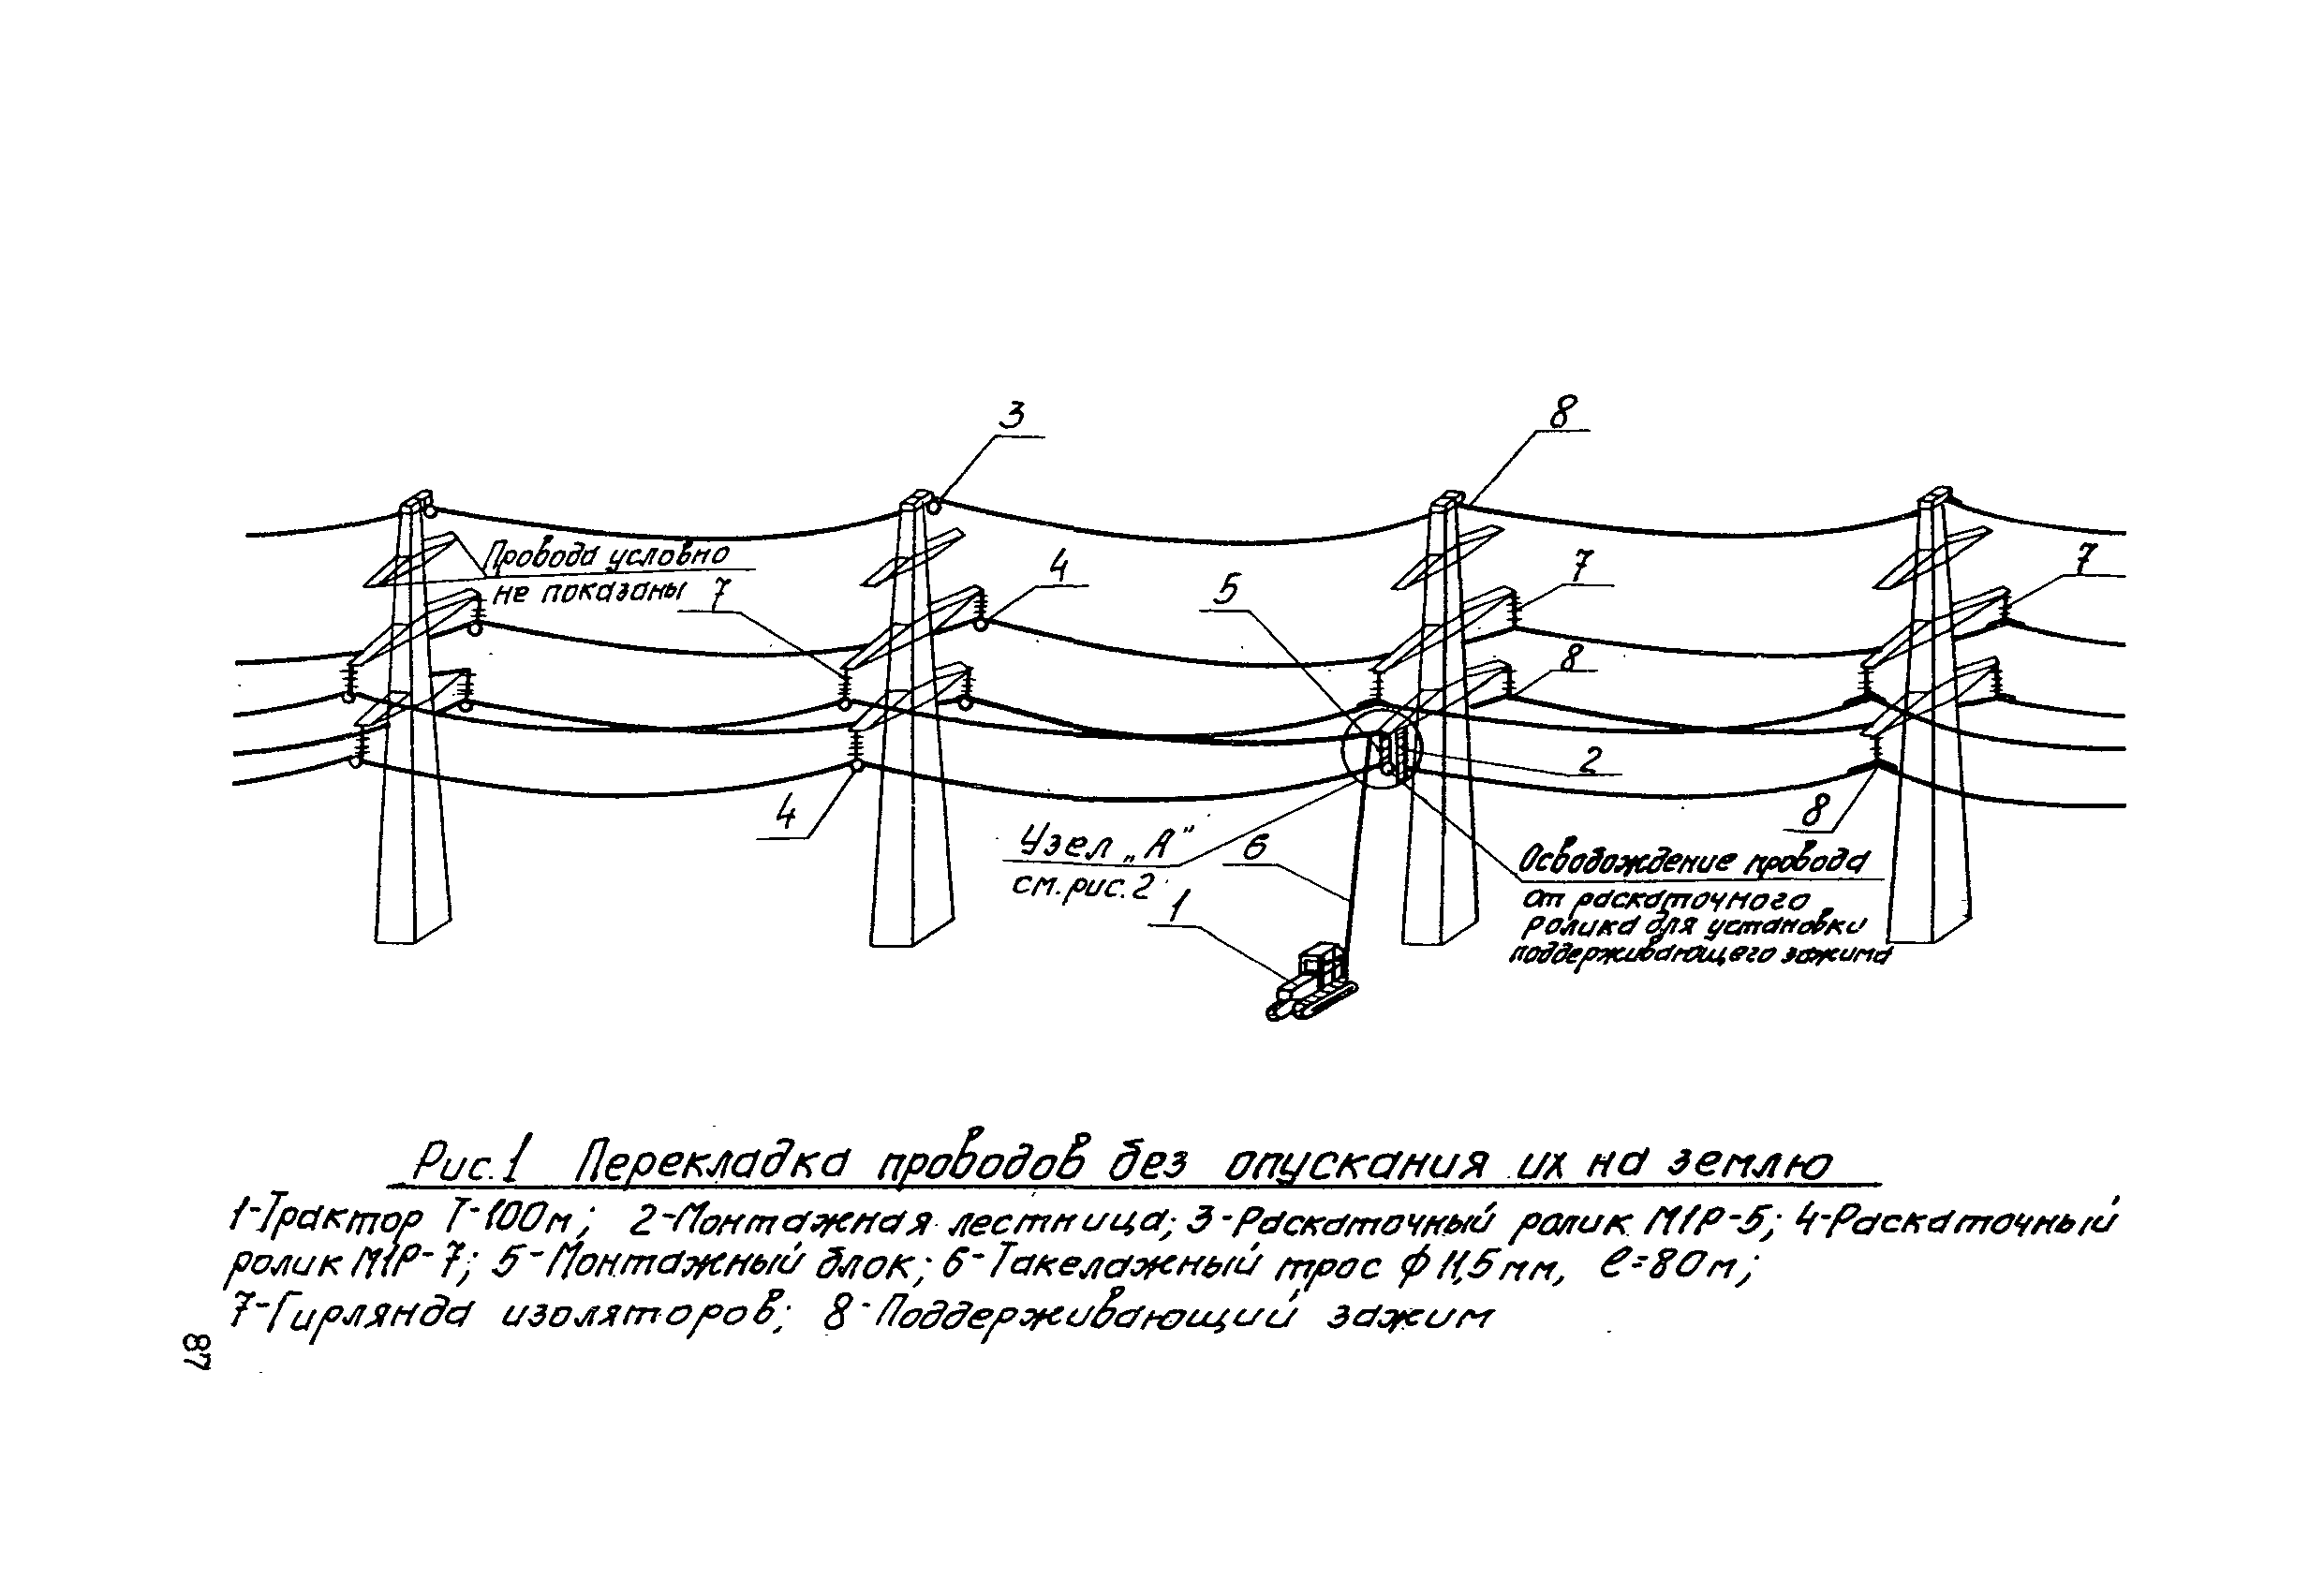 3
8
Провода условно
не показаны
7
4
5
7
7
8
2
4
8
Узел „А"
см. рис. 2
6
1
Освобождение провода
от раскаточного
ролика для установки
поддерживающего зажима
Рис.1 Перекладка проводов без опускания их на землю
1-Трактор Т-100м; 2-Монтажная лестница; 3-Раскаточный ролик М1Р-5; 4-Раскаточный
ролик М1Р-7; 5-Монтажный блок; 6-Такелажный трос ф 11,5мм, ℓ=80м;
7-Гирлянда изоляторов; 8-Поддерживающий зажим
87